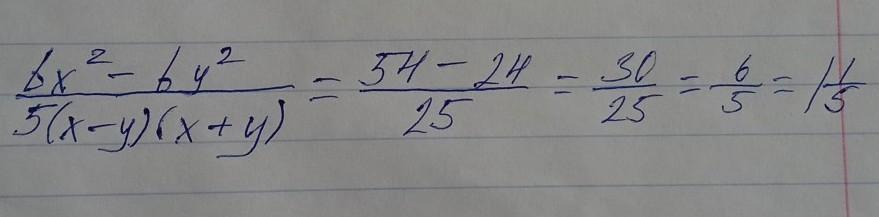 (6x² - 6y²)/(5(x-y)(x+y)) = (54 - 24)/25 = 30/25 = 6/5 = 1 1/5